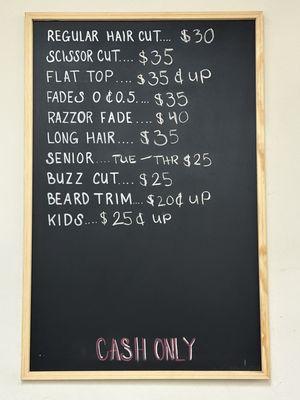 REGULAR HAIR CUT.... $30
SCISSOR CUT.... $35
FLAT TOP.... $35 ¢ UP
FADES 0 ¢ 0.5.... $35
RAZZOR FADE.... $40
LONG HAIR.... $35
SENIOR.... TUE-THR $25
BUZZ CUT.... $25
BEARD TRIM.... $20 ¢ UP
KIDS.... $25 ¢ UP
CASH ONLY